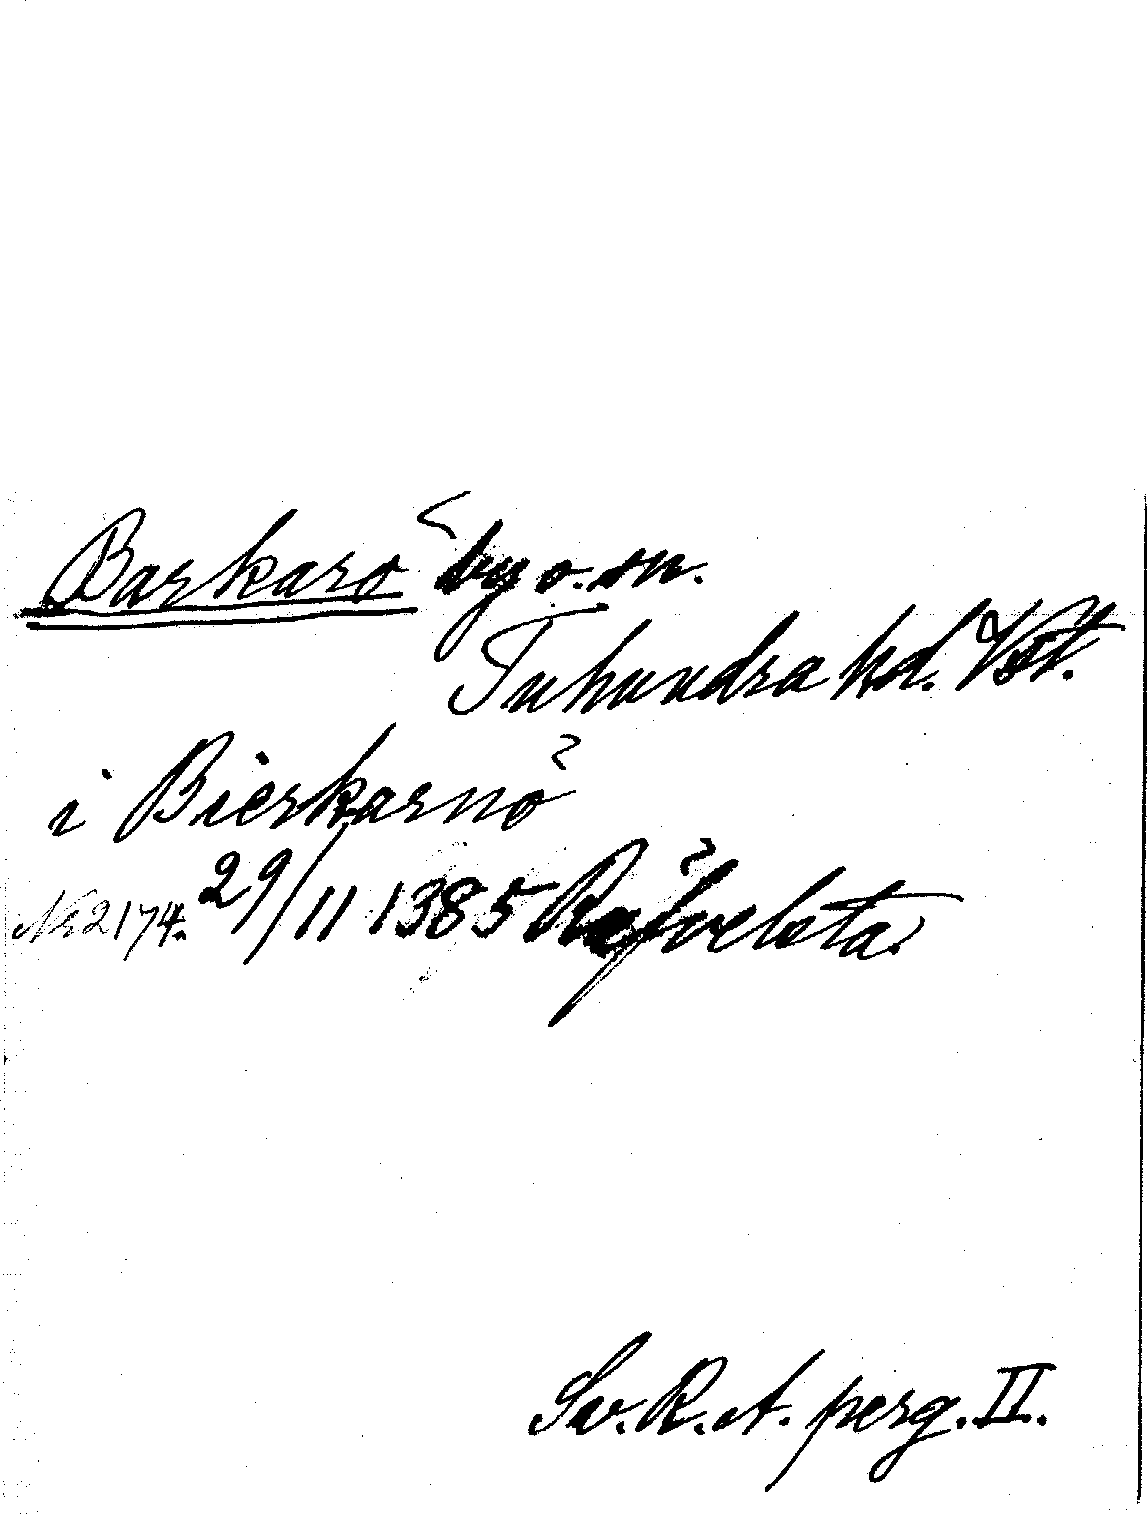 Barkarö by o. sn.
Tuhundra hd. Vstm.
i Bierkarnö
Nr 2174. 29/11 1385 Räfvelsta
Sv. R. A. perg. II.